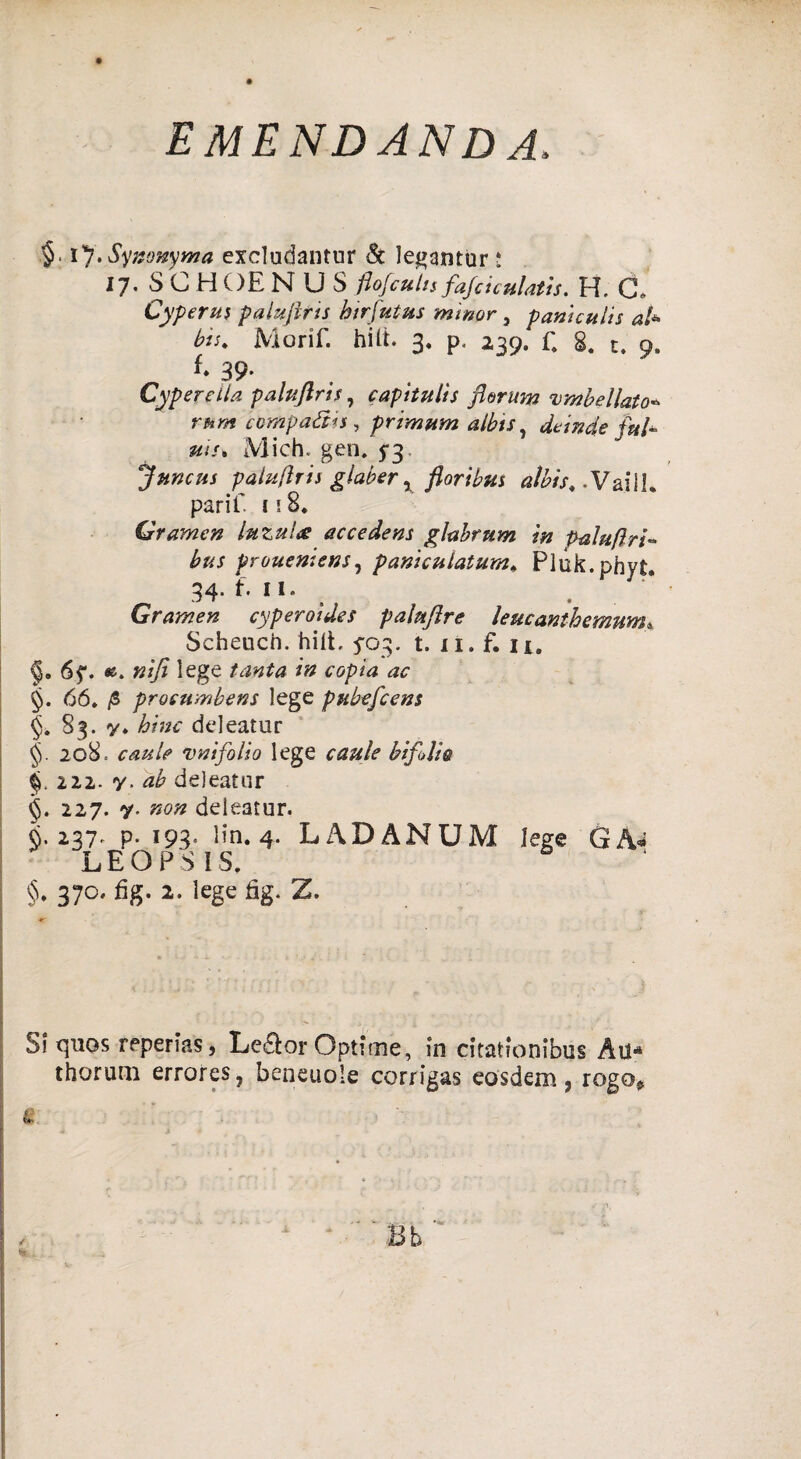 EMENDANDA.
§. 17. Synonyma excludantur & legantur:
17. SCHOENUS floſculis faſciculatis. H. C.
Cyperus paluſtris hirſutus minor, paniculis al-
bis. Moriſ. hiſt. 3. p. 239. ſ. 8. t. 9.
f. 39.
Cyperella paluſtris, capitulis florum vmbellato-
rum compactis, primum albis, deinde ful-
uis. Mich. gen. 53.
Juncus paluſtris glaber, floribus albis. Vaill.
pariſ. 118.
Gramen luzulæ accedens glabrum in paluſtri-
bus proueniens, paniculatum. Pluk. phyt.
34. f. 11.
Gramen cyperoides paluſtre leucanthemum.
Scheuch. hiſt. 503. t. 11. f. 11.
§. 65. α. niſi lege tanta in copia ac
§. 66. β procumbens lege pubeſcens
§. 83. γ. hinc deleatur
§. 208. caule vnifolio lege caule bifolio
§. 222. γ. ab deleatur
§. 227. γ. non deleatur.
§. 237. p. 193. lin. 4. LADANUM lege GA-
LEOPSIS.
§. 370. fig. 2. lege fig. Z.
Si quos reperias, Lector Optime, in citationibus Au-
thorum errores, beneuole corrigas eosdem, rogo.
Bb